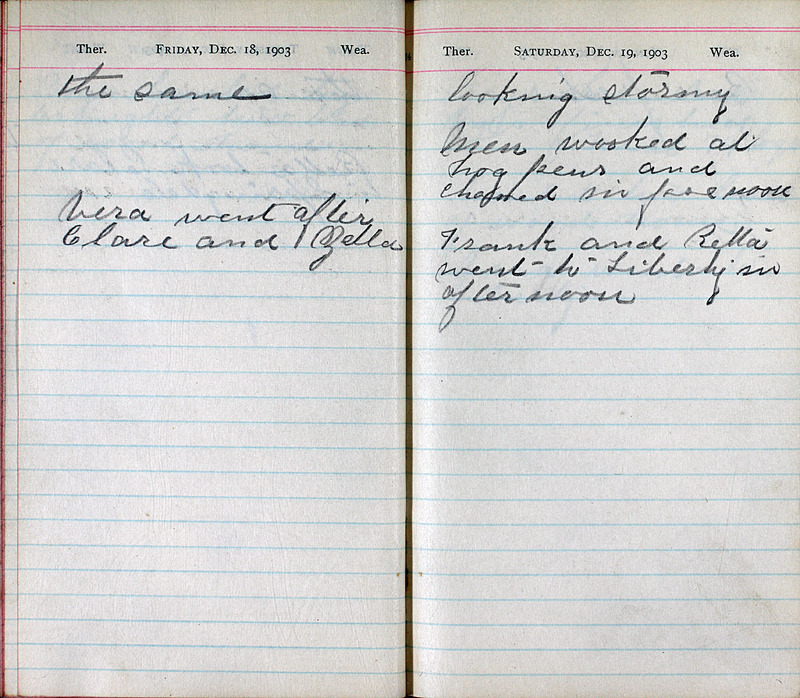 Ther. FRIDAY, DEC. 18, 1903 Wea.
the same
Vera went after
Clare and Zella
Ther. SATURDAY, DEC. 19, 1903 Wea.
looking stormy
Men worked at
hog pens and
in fore noon
Frank and Retta
went to Liberty in
after noon